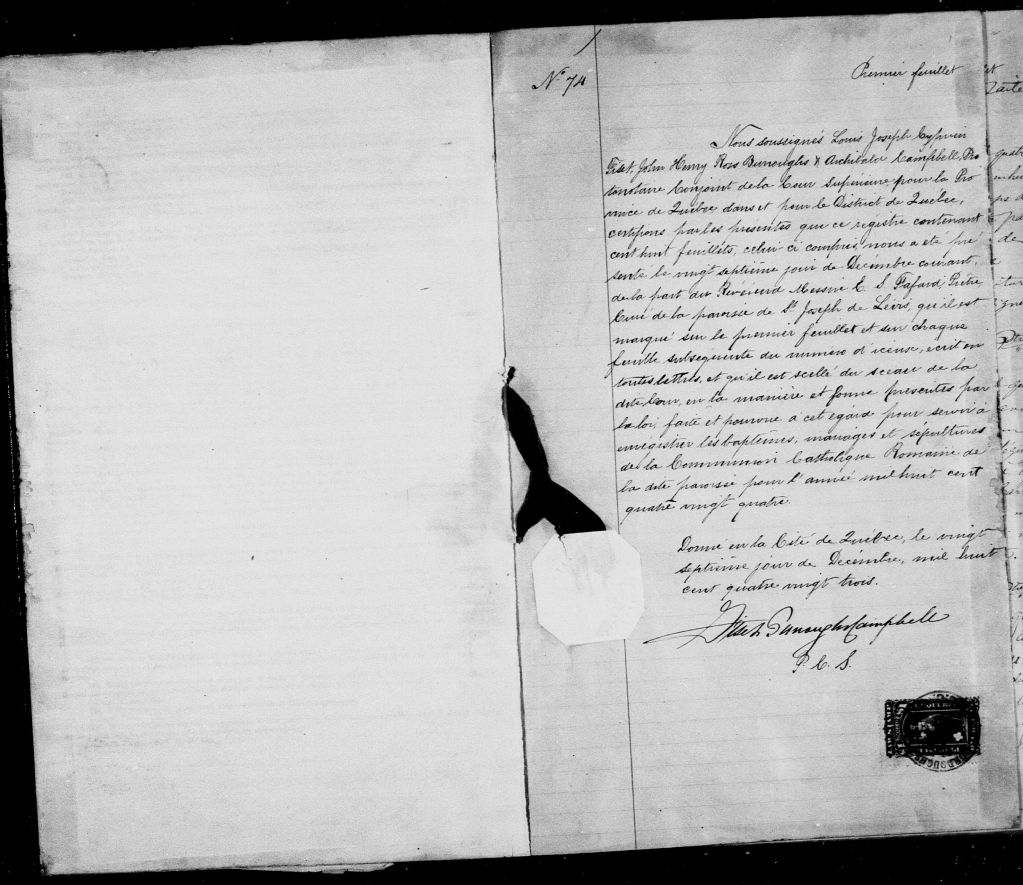 Nº 74
Premier feuillet
Nous soussignés Louis Joseph Cyprien
Fiset, John Henry Ross Burroughs & Archibald Campbell, Pro
tonotaire Conjoint de la Cour Supérieure pour la Pro
vince de Québec dans et pour le District de Québec,
certifions par les présentes que ce régistre contenant
cent huit feuillets, celui ci compris, nous a été pré
senté le vingt septième jour de Décembre courant,
de la part du Révérend Messire E. S. Fafard, Prêtre
Curé de la paroisse de St Joseph de Lévis, qu'il est
marqué sur le premier feuillet et sur chaque
feuille subséquente du numéro d'iceux, écrit en
toutes lettres, et qu'il est scellé du sceau de la
dite Cour, en la manière et forme prescrites par
la loi, faite et pourvue à cet égard pour servir à
enregistrer les baptêmes, mariages et sépultures
de la Communion Catholique Romaine de
la dite paroisse pour l'année mil huit cent
quatre vingt quatre.
Donné en la Cité de Québec, le vingt
septième jour de Décembre, mil huit
cent quatre vingt trois.
Fiset Burroughs Campbell
P. C. S.